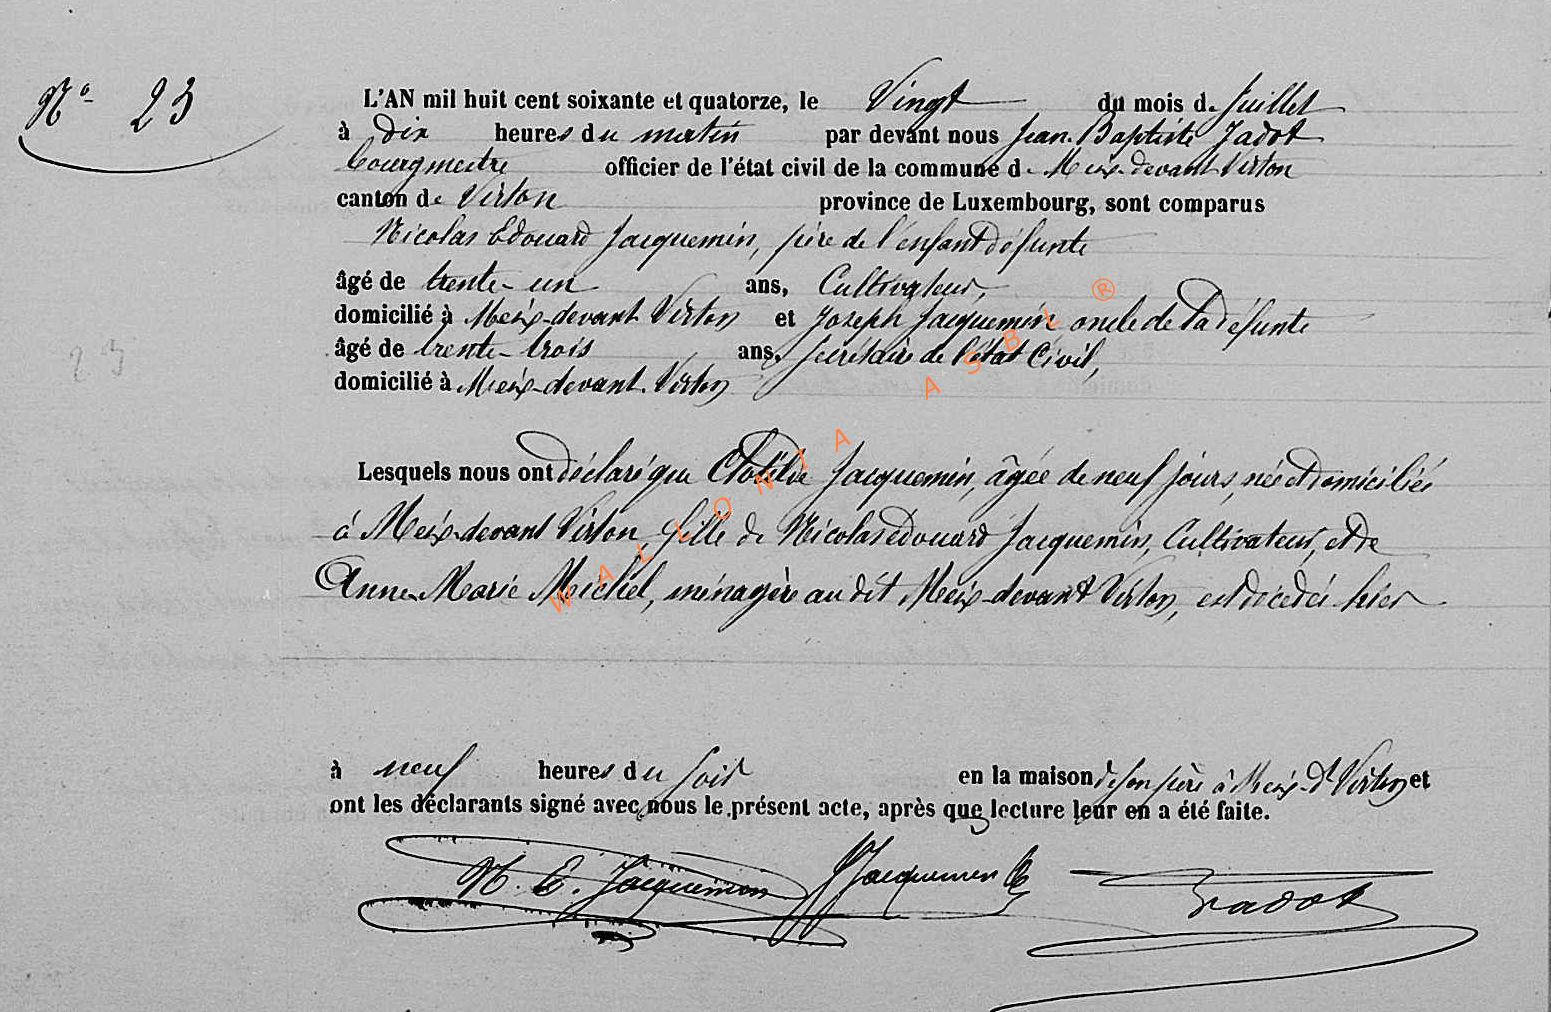 N° 23
L'AN mil huit cent soixante et quatorze, le Vingt du mois de Juillet
à dix heures du matin par devant nous Jean-Baptiste Jadot
bourgmestre officier de l'état civil de la commune de Meix-devant-Virton
canton de Virton province de Luxembourg, sont comparus
Nicolas Edouard Jacquemin, père de l'enfant défunte
âgé de trente-un ans, Cultivateur,
domicilié à Meix-devant-Virton et Joseph Jacquemin oncle de la défunte
âgé de trente-trois ans, secrétaire de l'état Civil,
domicilié à Meix-devant-Virton
23
Lesquels nous ont déclaré que Clotilde Jacquemin, âgée de neuf jours, née et domiciliée
à Meix-devant Virton, fille de Nicolas Edouard Jacquemin, Cultivateur, et de
Anne-Marie Michel, ménagère au dit Meix-devant Virton, est décédée hier
à neuf heures du soir en la maison de son père à Meix-dt Virton et
ont les déclarants signé avec nous le présent acte, après que lecture leur en a été faite.
N. E. Jacquemin J Jacquemin Jadot
WALLONIA ASBL ®